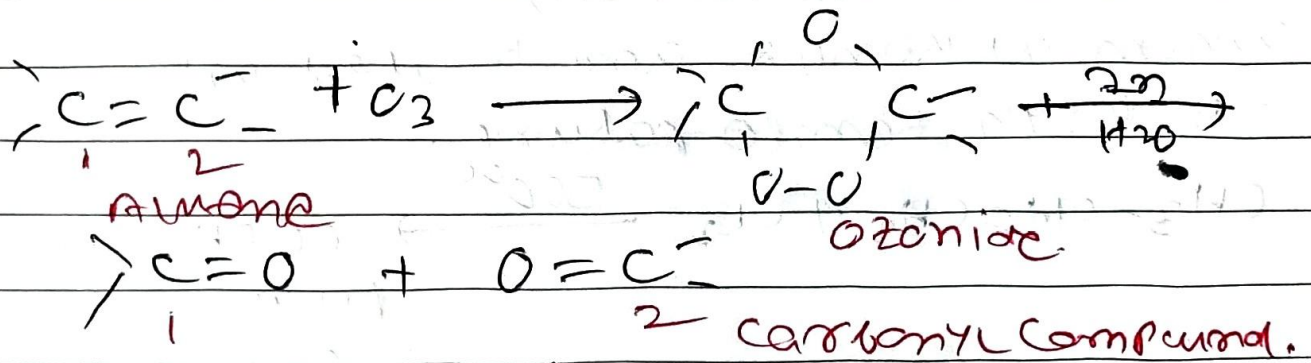 >C=C< + O3 ⟶ >C (O) (O-O) C< + Zn/H2O ⟶
1 2
Alkene
Ozonide
>C=O + O=C<
1 2 Carbonyl Compound.